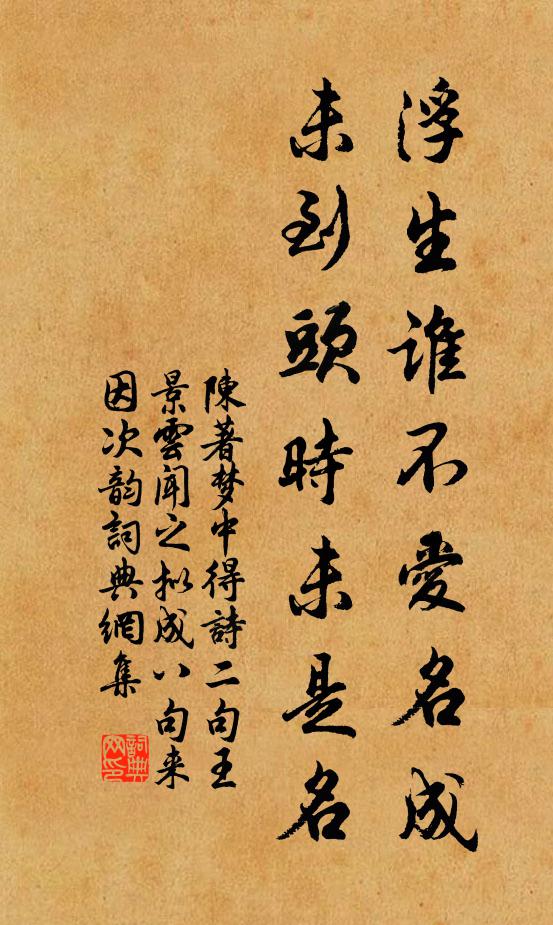 浮生谁不愛名成
未到頭時未是名
陳著梦中得詩二句王
景雲闻之拟成八句来
因次韵詞典網集
詞典网印